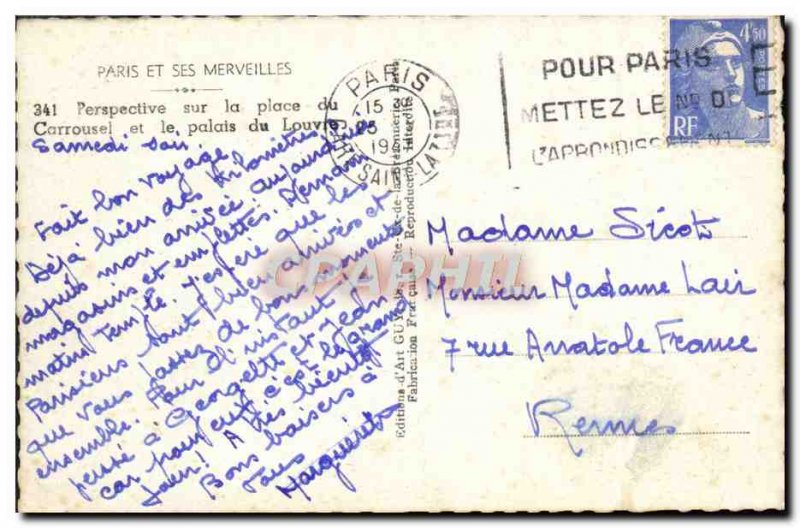 PARIS ET SES MERVEILLES
341 Perspective sur la place du
Carrousel et le palais du Louvre
Samedi soir.
Fait bon voyage.
Déjà bien des kilomètres
depuis mon arrivée aujourd'hui
magasins et emplettes. Demain
matin temple. J'espère que les
Parisiens sont bien arrivés et
que vous passez de bons moments
ensemble. Pour l'instant
pensé à Georgette et Jean
car pour eux c'est le grand
jour! A très bientôt
Bons baisers à
tous
Marguerite
Editions d'Art GUY
Fabrication Française
Reproduction Interdite
PARIS
15
25
19
GARE SAINT LAZARE
POUR PARIS
METTEZ LE No DE
L'ARRONDISSEMENT
4F50
RF
CPAPHIL
Madame Sicot
Monsieur Madame Lair
7 rue Anatole France
Rennes